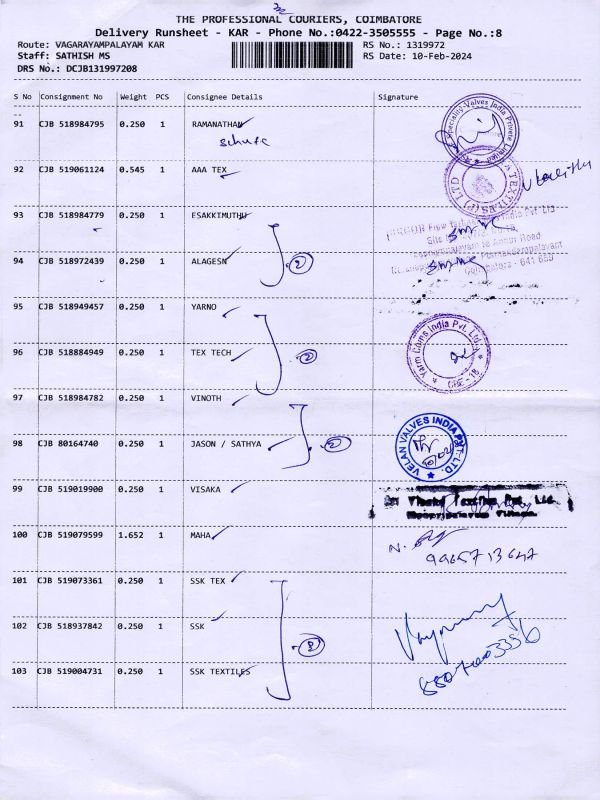 THE PROFESSIONAL COURIERS, COIMBATORE
Delivery Runsheet - KAR - Phone No.:0422-3505555 - Page No.:8
Route: VAGARAYAMPALAYAM KAR
RS No.: 1319972
Staff: SATHISH MS
RS Date: 10-Feb-2024
DRS No.: DCJB131997208
S No Consignment No Weight PCS Consignee Details Signature
--
91 CJB 518984795 0.250 1 RAMANATHAN
92 CJB 519061124 0.545 1 AAA TEX
93 CJB 518984779 0.250 1 ESAKKIMUTHU
94 CJB 518972439 0.250 1 ALAGESN
2
95 CJB 518949457 0.250 1 YARNO
96 CJB 518884949 0.250 1 TEX TECH
2
Yarn Coms India Pvt. Ltd.
97 CJB 518984782 0.250 1 VINOTH
98 CJB 80164740 0.250 1 JASON / SATHYA
2
VELAN VALVES INDIA PVT. LTD.
99 CJB 519019900 0.250 1 VISAKA
100 CJB 519079599 1.652 1 MAHA
9965713647
101 CJB 519073361 0.250 1 SSK TEX
102 CJB 518937842 0.250 1 SSK
103 CJB 519004731 0.250 1 SSK TEXTILES